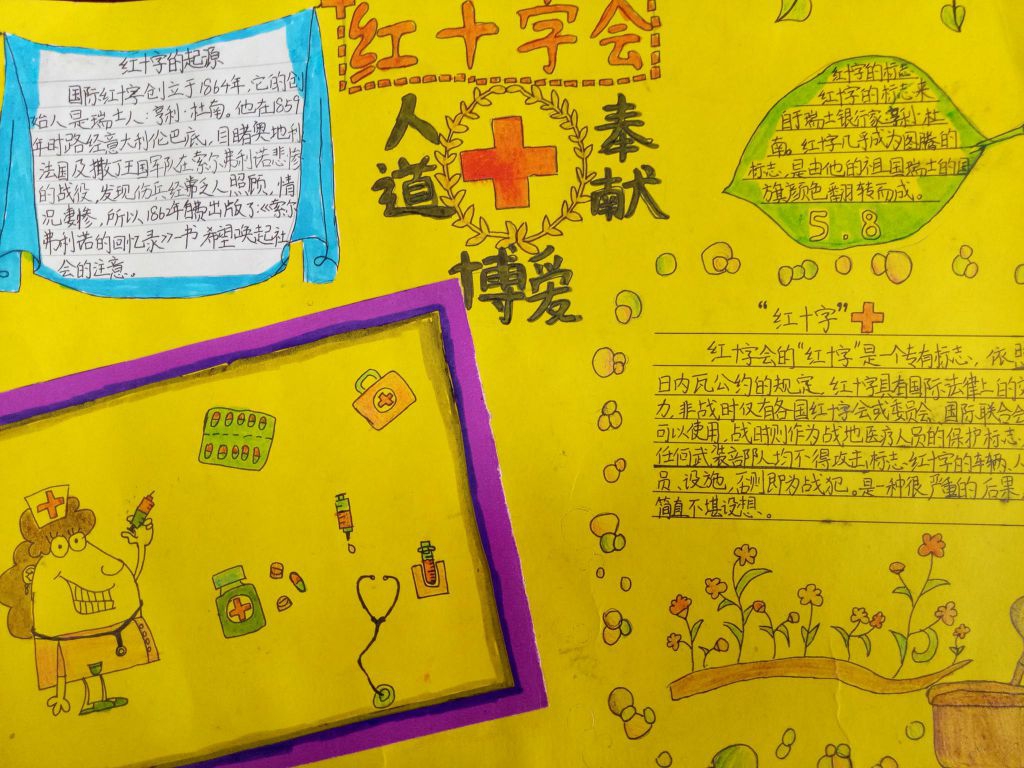 红十字会
红十字的起源
国际红十字创立于1864年，它的创
始人是瑞士人：亨利·杜南。他在1859
年时路经意大利伦巴底，目睹奥地利、
法国及撒丁王国军队在索尔弗利诺悲惨
的战役，发现伤兵经常乏人照顾，情
况凄惨，所以1862年自费出版了《索尔
弗利诺的回忆录》一书 希望唤起社
会的注意。
人道
奉献
博爱
红十字的标志
红十字的标志来
自于瑞士银行家亨利·杜
南。红十字几乎成为图腾的
标志，是由他的祖国瑞士的国
旗颜色翻转而成。
5.8
“红十字”
红十字会的“红十字”是一个专有标志，依
日内瓦公约的规定，红十字具有国际法律上的
力，非战时仅有各国红十字会或委员会、国际联合会
可以使用，战时则作为战地医疗人员的保护标志，
任何武装部队均不得攻击标志红十字的车辆、人
员、设施，否则即为战犯。是一种很严重的后果，
简直不堪设想、。